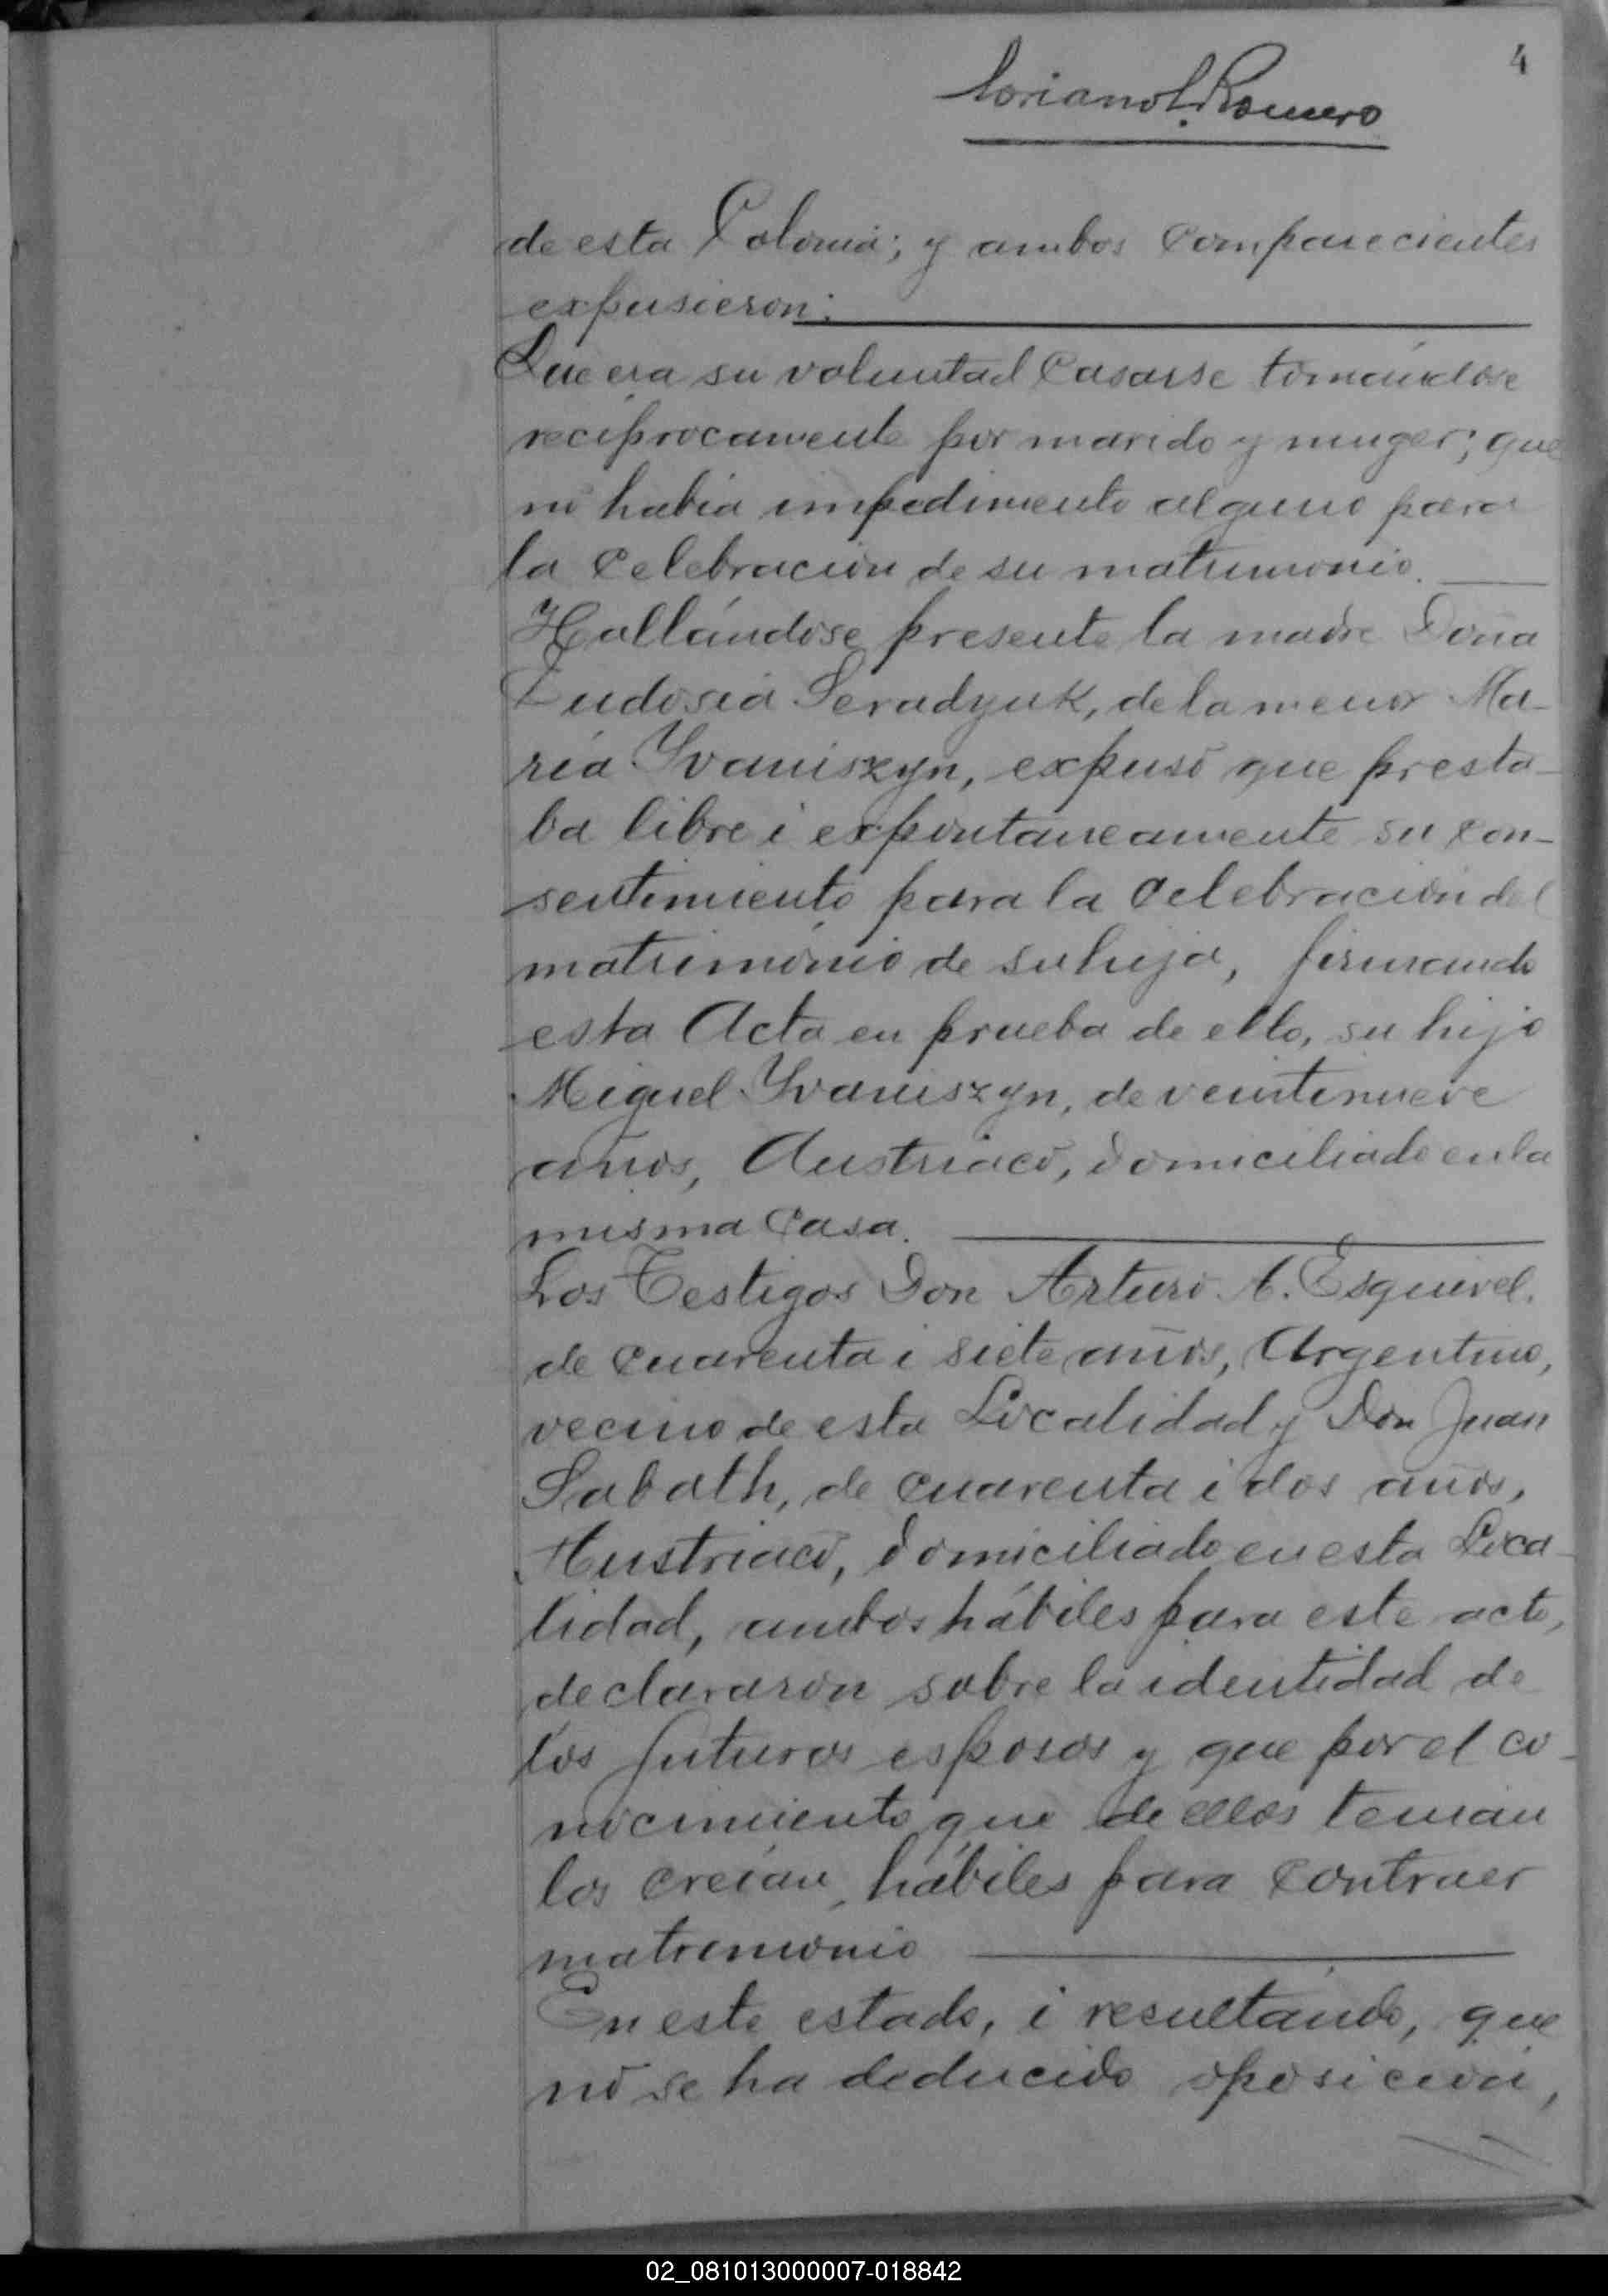 4
L. Romero
de esta Colonia; y ambos comparecientes
expusieron:
Que era su voluntad casarse tomándose
recíprocamente por marido y muger; que
no había impedimento alguno para
la celebración de su matrimonio.
Hallándose presente la madre Doña
Eudosia Seradyuk, de la menor Ma-
ría Yvaniszyn, expuso que presta-
ba libre i expontaneamente su con-
sentimiento para la celebración del
matrimónio de su hija, firmando
esta Acta en prueba de ello, su hijo
Miguel Yvaniszyn, de veintinueve
años, Austriaco, domiciliado en la
misma casa.
Los Testigos Don Arturo A. Esquivel,
de cuarenta i siete años, Argentino,
vecino de esta Localidad y Don Juan
Sabath, de cuarenta i dos años,
Austriaco, domiciliado en esta Loca-
lidad, ambos hábiles para este acto,
declararon sobre la identidad de
los futuros esposos y que por el co-
nocimiento que de ellos tenían
los creían hábiles para contraer
matrimonio
En este estado, i resultando, que
no se ha deducido oposición,
02_081013000007-018842